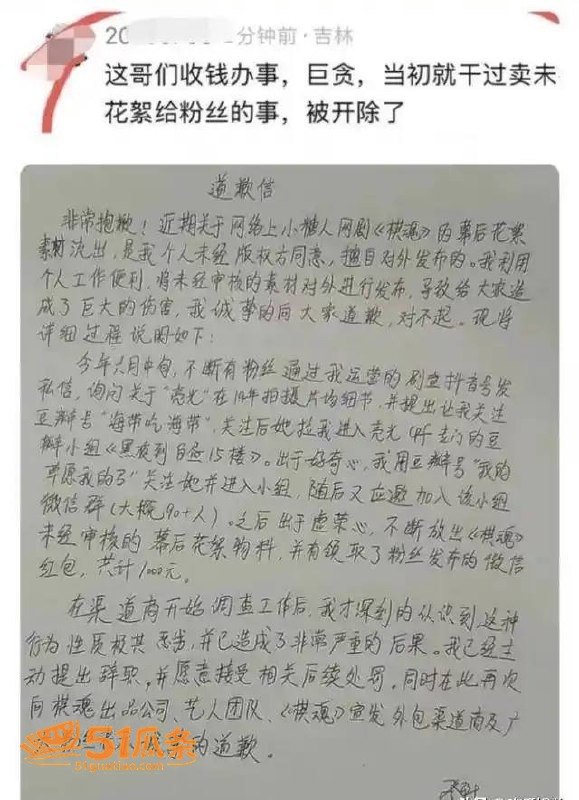 分钟前·吉林
这哥们收钱办事，巨贪，当初就干过卖未
花絮给粉丝的事，被开除了
道歉信
非常抱歉！近期关于网络上小糖人网剧《棋魂》的幕后花絮
素材流出，是我个人未经版权方同意，擅自对外发布的。我利用
个人工作便利，将未经审核的素材对外进行发布，导致给大家造
成了巨大的伤害，我诚挚的向大家道歉，对不起。现将
详细过程说明如下：
今年六月中旬，不断有粉丝通过我运营的剧宣抖音号发
私信，询问关于“亮光”在19年拍摄片场细节，并提出让我关注
豆瓣号“海带吃海带”，关注后她拉我进入亮光
瓣小组《黑夜到白昼15楼》。出于好奇心，我用豆瓣号“我的
关注她并进入小组，随后又应邀加入该小组
微信群（大概90+人）。之后出于虚荣心，不断放出《棋魂》
未经审核的幕后花絮物料，并有领取了粉丝发布的微信
红包，共计1000元。
在渠道商开始调查工作后，我才深刻的认识到这种
行为性质极其恶劣，并已造成了非常严重的后果。我已经主
动提出辞职，并愿意接受相关后续处罚。同时在此再次
向棋魂出品公司、艺人团队、《棋魂》宣发外包渠道商及广
的道歉。
51瓜条